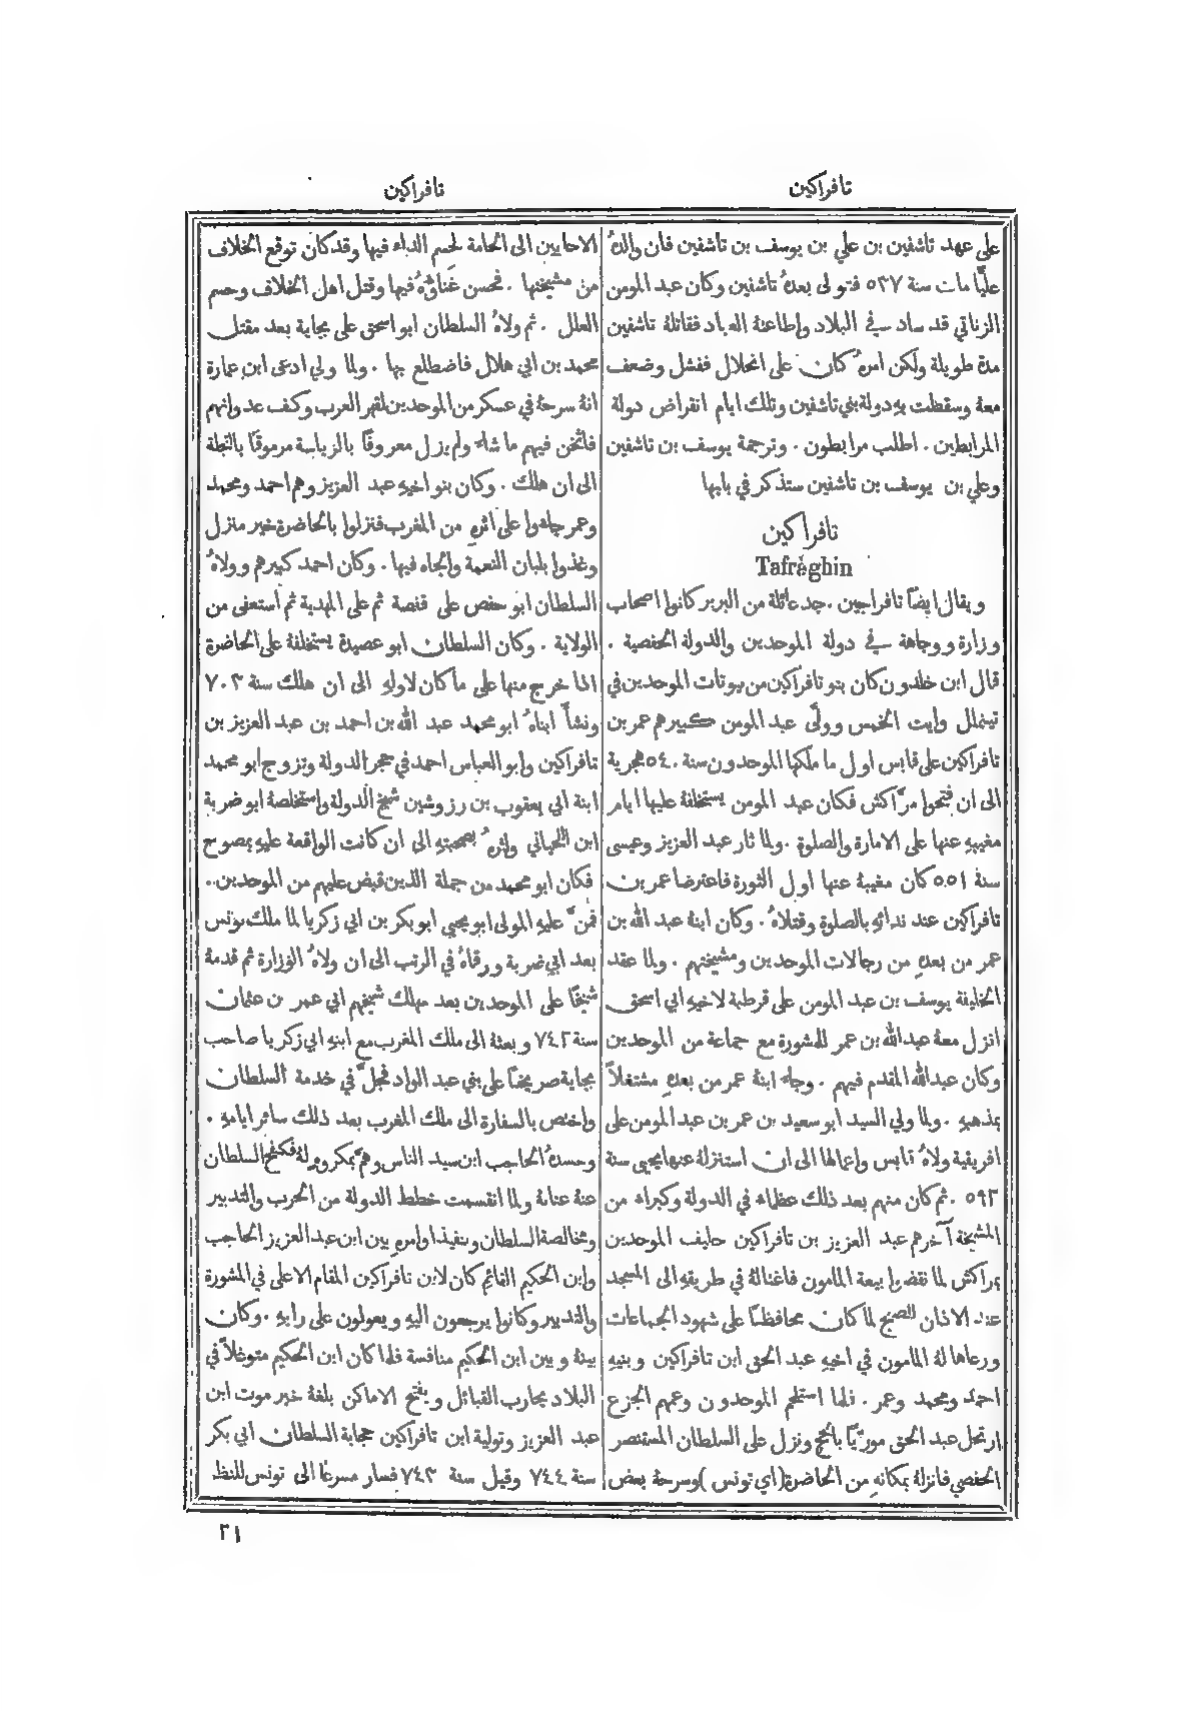 تافراكين
تافراكين
على عهد تاشفين بن علي بن يوسف بن تاشفين فان والدهُ
عليًّا مات سنة ٥٣٧ فتولى بعدهُ تاشفين وكان عبد المومن
الزناتي قد ساد في البلاد واطاعتهُ العباد فقاتلهُ تاشفين
مدة طويلة ولكن امرهُ كان على انحلال ففشل وضعف
معهُ وسقطت به دولة بني تاشفين وتلك ايام انقراض دولة
المرابطين . اطلب مرابطون . وترجمة يوسف بن تاشفين
وعلي بن يوسف بن تاشفين ستذكر في بابها
تافراكين
Tafrèghin
ويقال ايضًا تافراجين . جد عائلة من البربر كانوا اصحاب
وزارة ووجاهة في دولة الموحدين والدولة الحفصية .
قال ابن خلدون كان بنو تافراكين من بيوتات الموحدين في
تينملل وايت الخمس وولَّى عبد المومن كبيرهم عمر بن
تافراكين على قابس اول ما ملكها الموحدون سنة ٥٤٠ هجرية
الى ان فتحوا مرَّاكش فكان عبد المومن يستخلفهُ عليها ايام
مغيبهِ عنها على الامارة والصلوة . ولما ثار عبد العزيز وعيسى
سنة ٥٥١ كان مغيبهُ عنها اول الثورة فاعترضا عمر بن
تافراكين عند ندائهِ بالصلوة وقتلاهُ . وكان ابنهُ عبد الله بن
عمر من بعدهِ من رجالات الموحدين ومشيختهم . ولما عقد
الخليفة يوسف بن عبد المومن على قرطبة لاخيهِ ابي اسحق
انزل معهُ عبد الله بن عمر للمشورة مع جماعة من الموحدين
وكان عبد الله المقدم فيهم . وجاء ابنهُ عمر من بعدهِ مشتغلاً
بمذهبهِ . ولما ولي السيد ابو سعيد بن عمر بن عبد المومن على
افريقية ولاهُ قابس واعمالها الى ان استنزلهُ عنها يحيى سنة
٥٩٣ . ثم كان منهم بعد ذلك عظماء في الدولة وكبراء من
المشيخة آخرهم عبد العزيز بن تافراكين حليف الموحدين
بمراكش لما نقضوا بيعة المامون فاغتالهُ في طريقهِ الى المسجد
عند الاذان للصبح لما كان محافظًا على شهود الجماعات
ورعاها لهُ المامون في اخيهِ عبد الحق ابن تافراكين وبنيهِ
احمد ومحمد وعمر . فلما استلحم الموحدون وعمهم الجزع
ارتحل عبد الحق موريًّا بالحج ونزل على السلطان المستنصر
الحفصي فانزلهُ بمكانهِ من الحاضرة (اي تونس) وسرحهُ بعض
الاحايين الى الحامة لحسم الداء فيها وقد كان توقع الخلاف
من مشيختها . فحسن غَناؤُهُ فيها وقتل اهل الخلاف وحسم
العلل . ثم ولاهُ السلطان ابو اسحق على بجاية بعد مقتل
محمد بن ابي هلال فاضطلع بها . ولما ولي ادعى ابن عمارة
انهُ سرحهُ في عسكر من الموحدين لقهر العرب وكف عدوانهم
فاثخن فيهم ما شاء ولم يزل معروفًا بالرياسة مرموقًا بالتجلة
الى ان هلك . وكان بنو اخيهِ عبد العزيز وهم احمد ومحمد
وعمر جاءوا على اثرهِ من المغرب فنزلوا بالحاضرة خير منزل
وغذوا بلبان النعمة والجاه فيها . وكان احمد كبيرهم وولاهُ
السلطان ابو حفص على قفصة ثم على المهدية ثم استعفى من
الولاية . وكان السلطان ابو عصيدة يستخلفهُ على الحاضرة
اذا خرج منها على ما كان لاولهِ الى ان هلك سنة ٧٠٣
ونشأَ ابناهُ ابو محمد عبد الله بن احمد بن عبد العزيز بن
تافراكين وابو العباس احمد في حجر الدولة وتزوج ابو محمد
ابنة ابي يعقوب بن رزوشين شيخ الدولة واستخلصهُ ابو ضربة
ابن اللحياني واثرهُ بصحبتهِ الى ان كانت الواقعة عليهِ بمصوح
فكان ابو محمد من جملة الذين قبض عليهم من الموحدين .
فمنَّ عليهِ المولى ابو يحيى ابو بكر بن ابي زكريا لما ملك تونس
بعد ابي ضربة ورقاهُ في الرتب الى ان ولاهُ الوزارة ثم قدمهُ
شيخًا على الموحدين بعد مهلك شيخهم ابي عمر بن عثمان
سنة ٧٤٢ وبعثهُ الى ملك المغرب مع ابنهِ ابي زكريا صاحب
بجاية صريخًا على بني عبد الواد فجلَّى في خدمة السلطان
واختص بالسفارة الى ملك المغرب بعد ذلك سائر ايامهِ .
وحسدهُ الحاجب ابن سيد الناس وهمَّ بمكروهٍ لهُ فكبح السلطان
عنهُ عنانهُ ولما انقسمت خطط الدولة من الحرب والتدبير
ومخالصة السلطان وتنفيذ اوامرهِ بين ابن عبد العزيز الحاجب
وابن الحكيم القائم كان لابن تافراكين المقام الاعلى في المشورة
والتدبير وكانوا يرجعون اليهِ ويعولون على رايهِ . وكان
بينهُ وبين ابن الحكيم منافسة فلما كان ابن الحكيم متوغلاً في
البلاد يحارب القبائل ويفتح الاماكن بلغهُ خبر موت ابن
عبد العزيز وتولية ابن تافراكين حجابة السلطان ابي بكر
سنة ٧٤٤ وقيل سنة ٧٤٣ فسار مسرعًا الى تونس للنظر
٣١